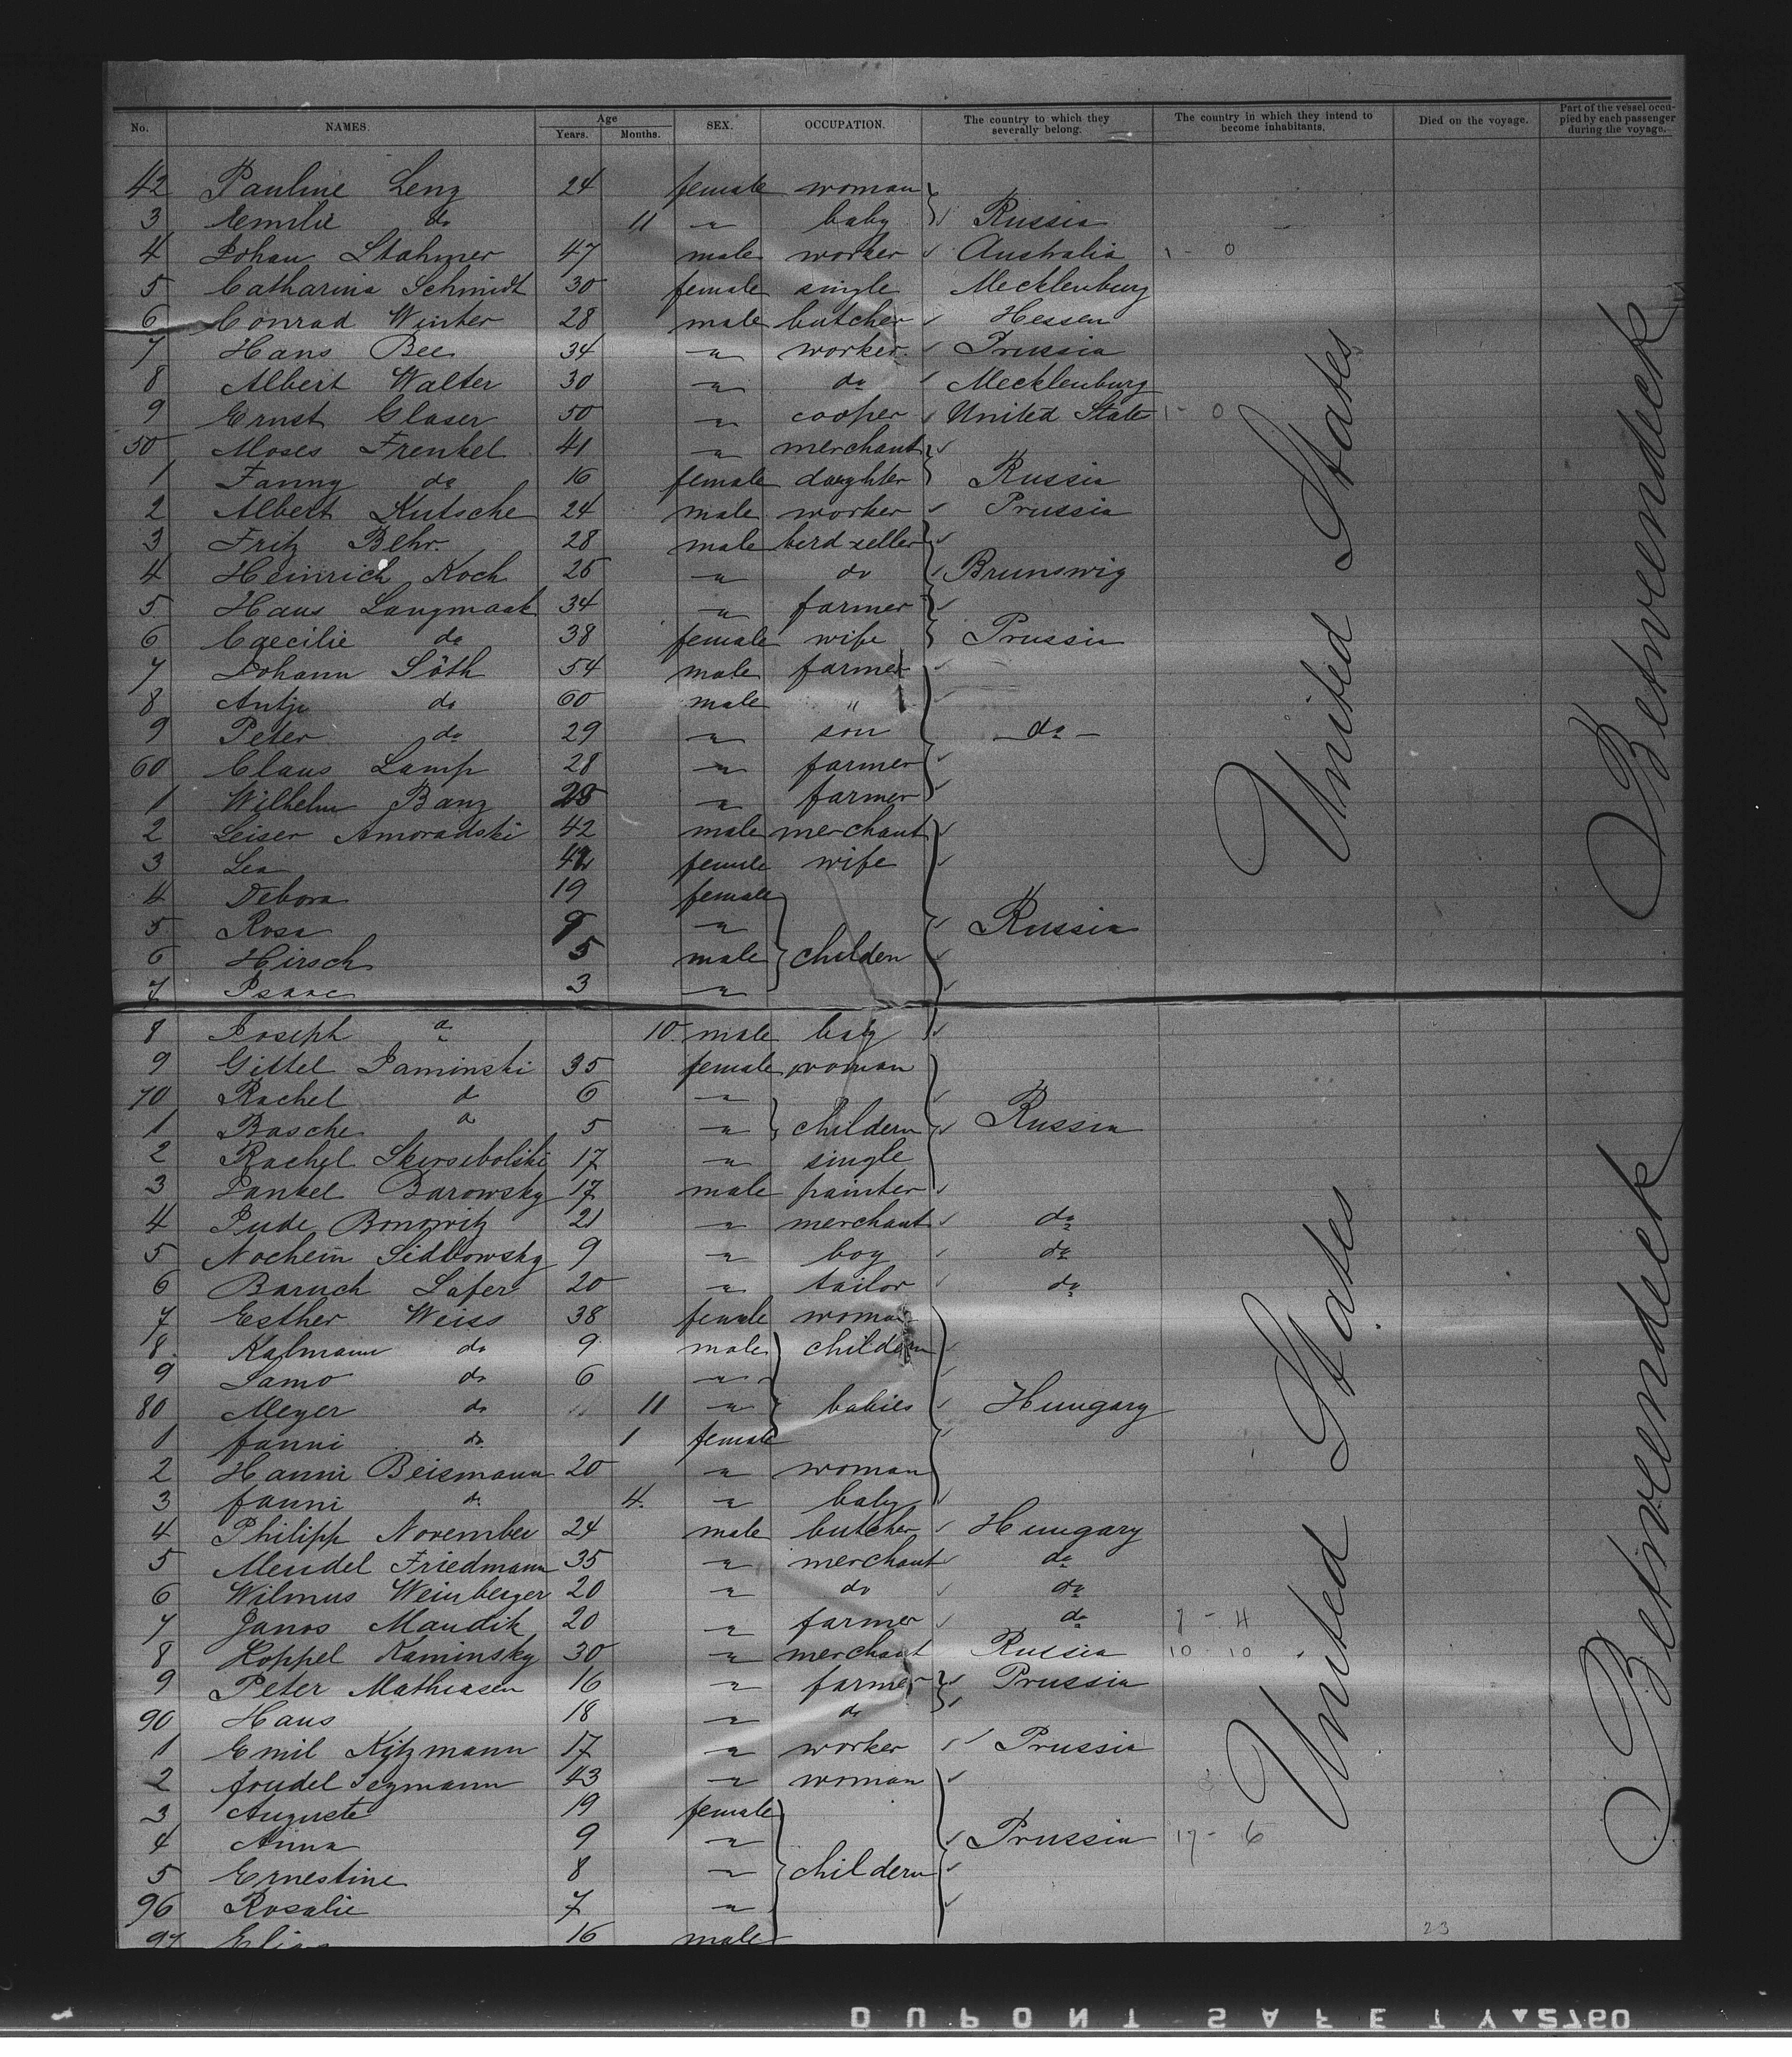 No. NAMES. Age Years. Months. SEX. OCCUPATION. The country to which they severally belong. The country in which they intend to become inhabitants. Died on the voyage. Part of the vessel occupied by each passenger during the voyage.
42 Pauline Lenz 24 female woman
3 Emilie do 11 " baby Russia
4 Johan Stahmer 47 male worker Australia 1 - 0
5 Catharina Schmidt 30 female single Mecklenburg
6 Conrad Winter 28 male butcher Hessen
7 Hans Bee 34 " worker Prussia
8 Albert Walter 30 " do Mecklenburg
9 Ernst Glaser 50 " cooper United State 1 - 0
50 Moses Frenkel 41 " merchant
1 Fanny do 16 female daughter Russia
2 Albert Kutsche 24 male worker Prussia
3 Fritz Behr. 28 male berd seller
4 Heinrich Koch 25 " do Brunswig
5 Hans Langmaak 34 " farmer
6 Caecilie do 38 female wife Prussia
7 Johann Söth 54 male farmer
8 Antje do 60 male "
9 Peter do 29 " son do
60 Claus Lamp 28 " farmer
1 Wilhelm Banz 25 " farmer
2 Leiser Amoradski 42 male merchant
3 Lea female wife
4 Debora 19 female
5 Rosa 9 " Russia
6 Hirsch 5 male children
7 Isaac 3 "
8 Joseph do 10 male baby
9 Gittel Jaminski 35 female woman
70 Rachel do 6 "
1 Basche do 5 " childern Russia
2 Rachel 17 " single
3 Jankel Barowsky 17 male painter
4 Jude Bonowitz 21 " merchant do
5 Nochem Sidlowsky 9 " boy do
6 Baruch Safer 20 " tailor do
7 Esther Weiss 38 female woman
8 Kalmann do 9 male childern
9 Samo do 6 "
80 Meyer do 11 " babies Hungary
1 fanni do 1 female
2 Hanni Beismann 20 " woman
3 fanni do 4 " baby
4 Philipp November 24 male butcher Hungary
5 Mendel Friedmann 35 " merchant do
6 Wilmus Weinberger 20 " do do
7 Janos Mandik 20 " farmer do 7 - 4
8 Koppel Kaminsky 30 " merchant Russia 10 - 10
9 Peter Mathiasen 16 " farmer Prussia
90 Hans 18 " do
1 Emil Kitzmann 17 " worker Prussia
2 43 " woman
3 Auguste 19 female
4 Anna 9 " Prussia 17 - 6
5 Ernestine 8 " childern
96 Rosalie 7 "
97 Elias 16 male
23
United States
Betweendeck
United States
Betweendeck
DUPONT SAFETY 2760